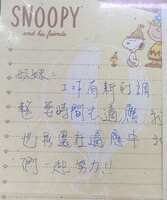 SNOOPY
and his friends
妹妹:
工作有新的調
整 要時間去適應 我
也我還在適應中
們一起努力!!